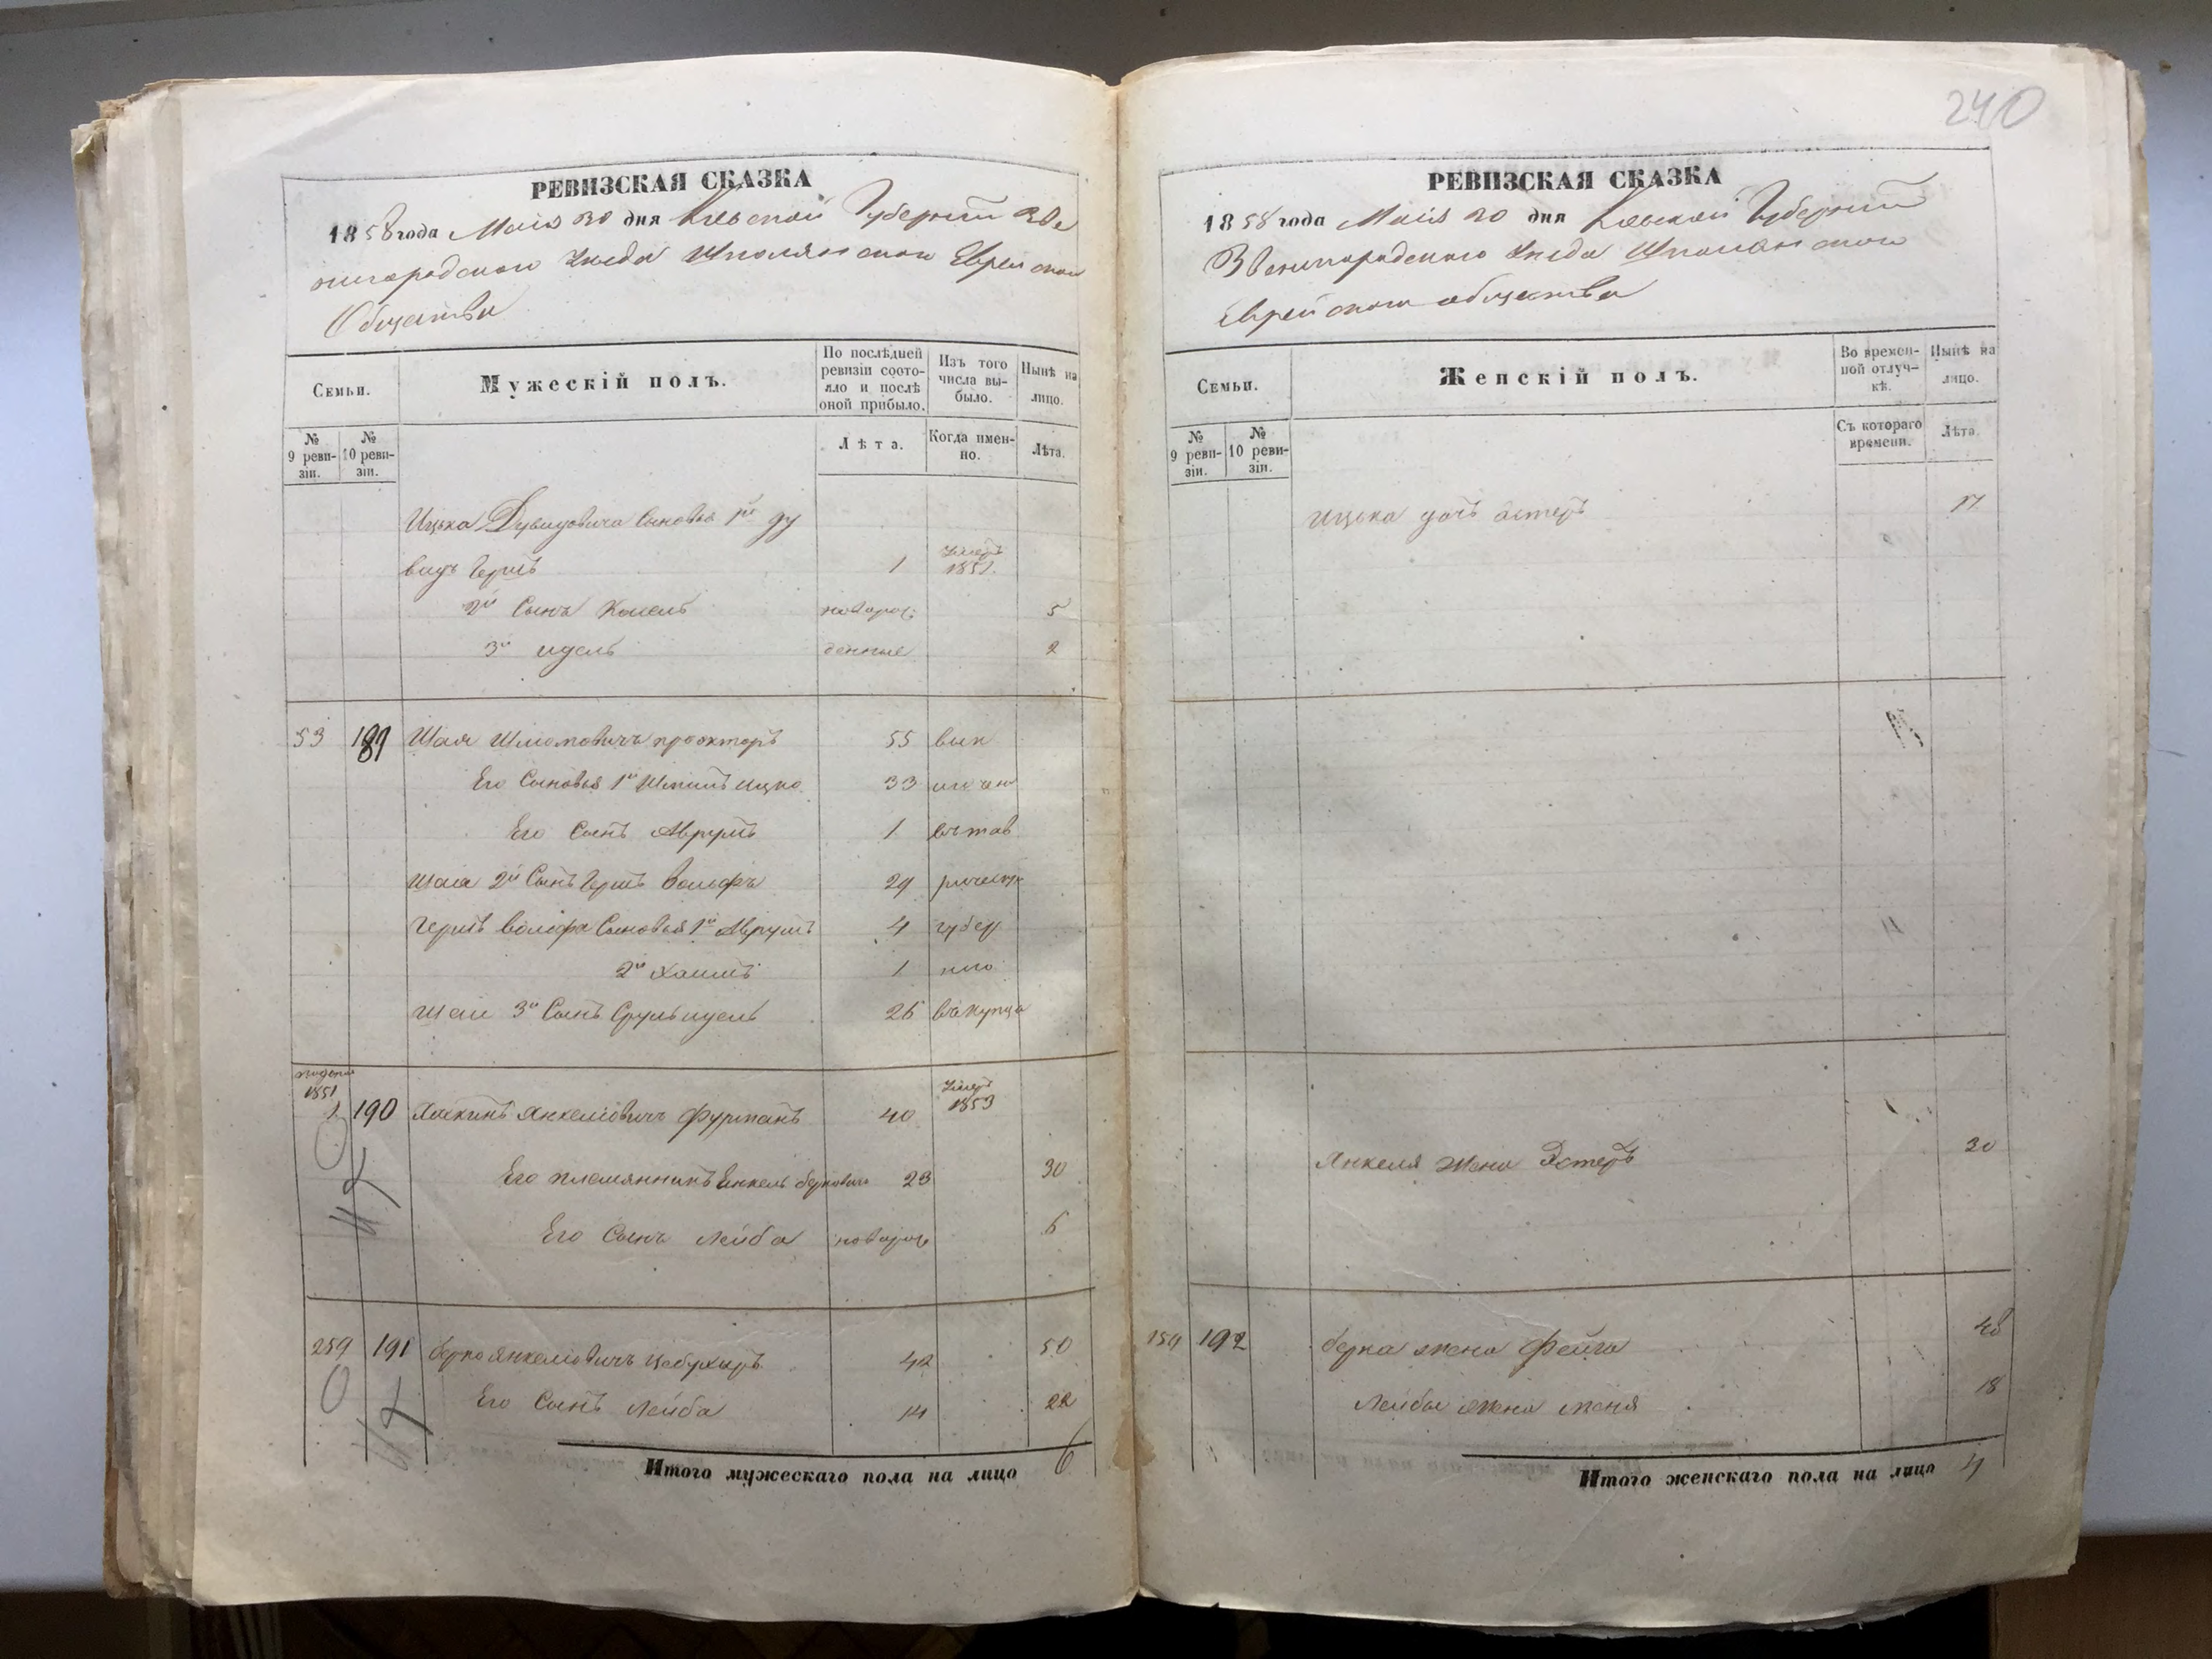 240
РЕВИЗСКАЯ СКАЗКА
1858 года Маія 20 дня Кіевской Губерніи Зве
нигородскаго Уезда Шполянскаго Еврейскаго
Общества
Семьи.
Мужескій полъ.
По послѣдней ревизіи состояло и послѣ оной прибыло.
Изъ того числа выбыло.
Нынѣ на лицо.
№ 9 ревизіи.
№ 10 ревизіи.
Лѣта.
Когда именно.
Лѣта.
Ицька Дувидовича Сыновья 1й Ду
видъ Гершъ 1 Умеръ 1851
2й Сынъ новорож 5
3й Идель денные 2
53 189 Шая Шлиомовичъ 55 вык
Его Сыновья 1й Ицко 33
Его Сынъ Аврумъ 1 въ тав
Шаи 2й Сынъ Гершъ Вольфъ 29 рическую
Гершъ Вольфа Сыновья 1й Аврумъ 4 губер
2й Хаимъ 1 нію
Шаи 3й Сынъ Срульидель 26 въ купца
1851
190 Янкеліовичъ Фурманъ 40 Умеръ 1853
Его племянникъ Янкель Берковичъ 23 30
Его Сынъ Лейба новорож 6
259 191 Берко Янкеліовичъ 42 50
Его Сынъ Лейба 14 22
Итого мужескаго пола на лицо 6
РЕВИЗСКАЯ СКАЗКА
1858 года Маія 20 дня Кіевской Губерніи
Звенигородскаго Уезда Шполянскаго
Еврейскаго общества
Семьи.
Женскій полъ.
Во временной отлучкѣ.
Нынѣ на лицо.
№ 9 ревизіи.
№ 10 ревизіи.
Съ котораго времени.
Лѣта.
Ицька дочь Эстеръ 17
Янкеля жена Эстеръ 30
192 Берка жена Фейга 48
Лейбы жена 18
Итого женскаго пола на лицо 4